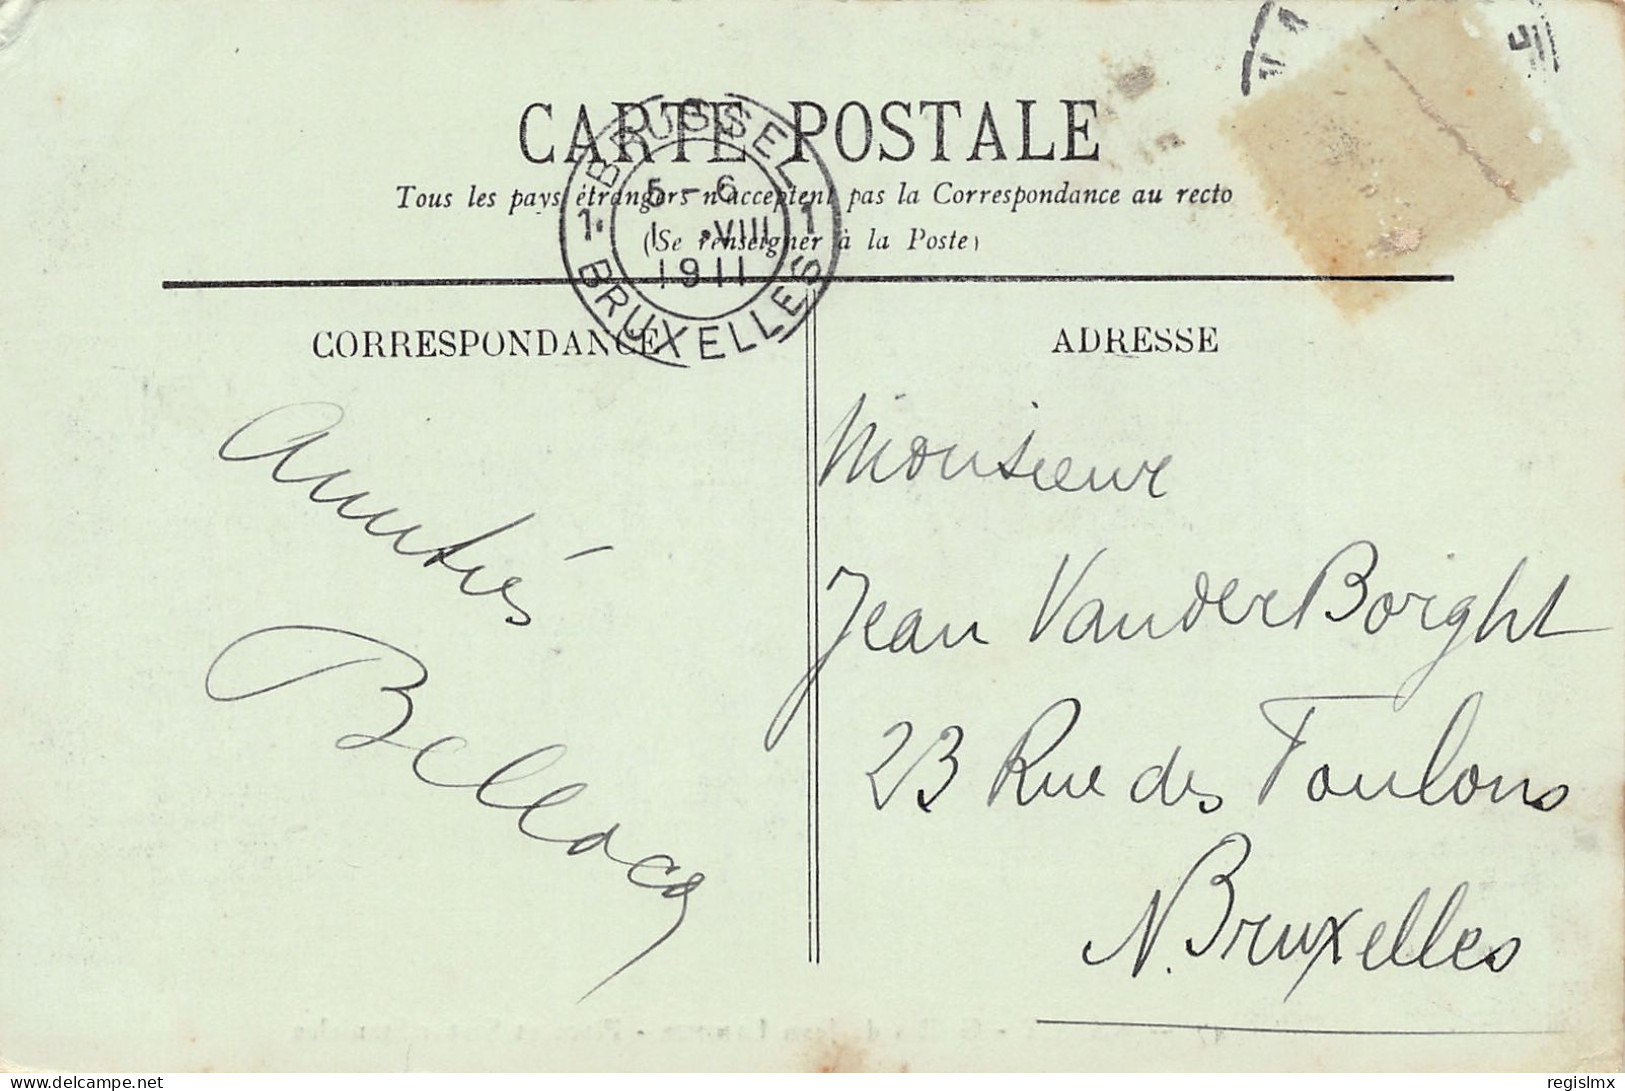 CARTE POSTALE
Tous les pays étrangers n'acceptent pas la Correspondance au recto
(Se renseigner à la Poste)
BRUSSEL
5-6
1 1 VIII 1
1911
BRUXELLES
CORRESPONDANCE
ADRESSE
Amitiés
Monsieur
Jean VanderBorght
23 Rue des Foulons
N. Bruxelles
delcampe.net
regislmx